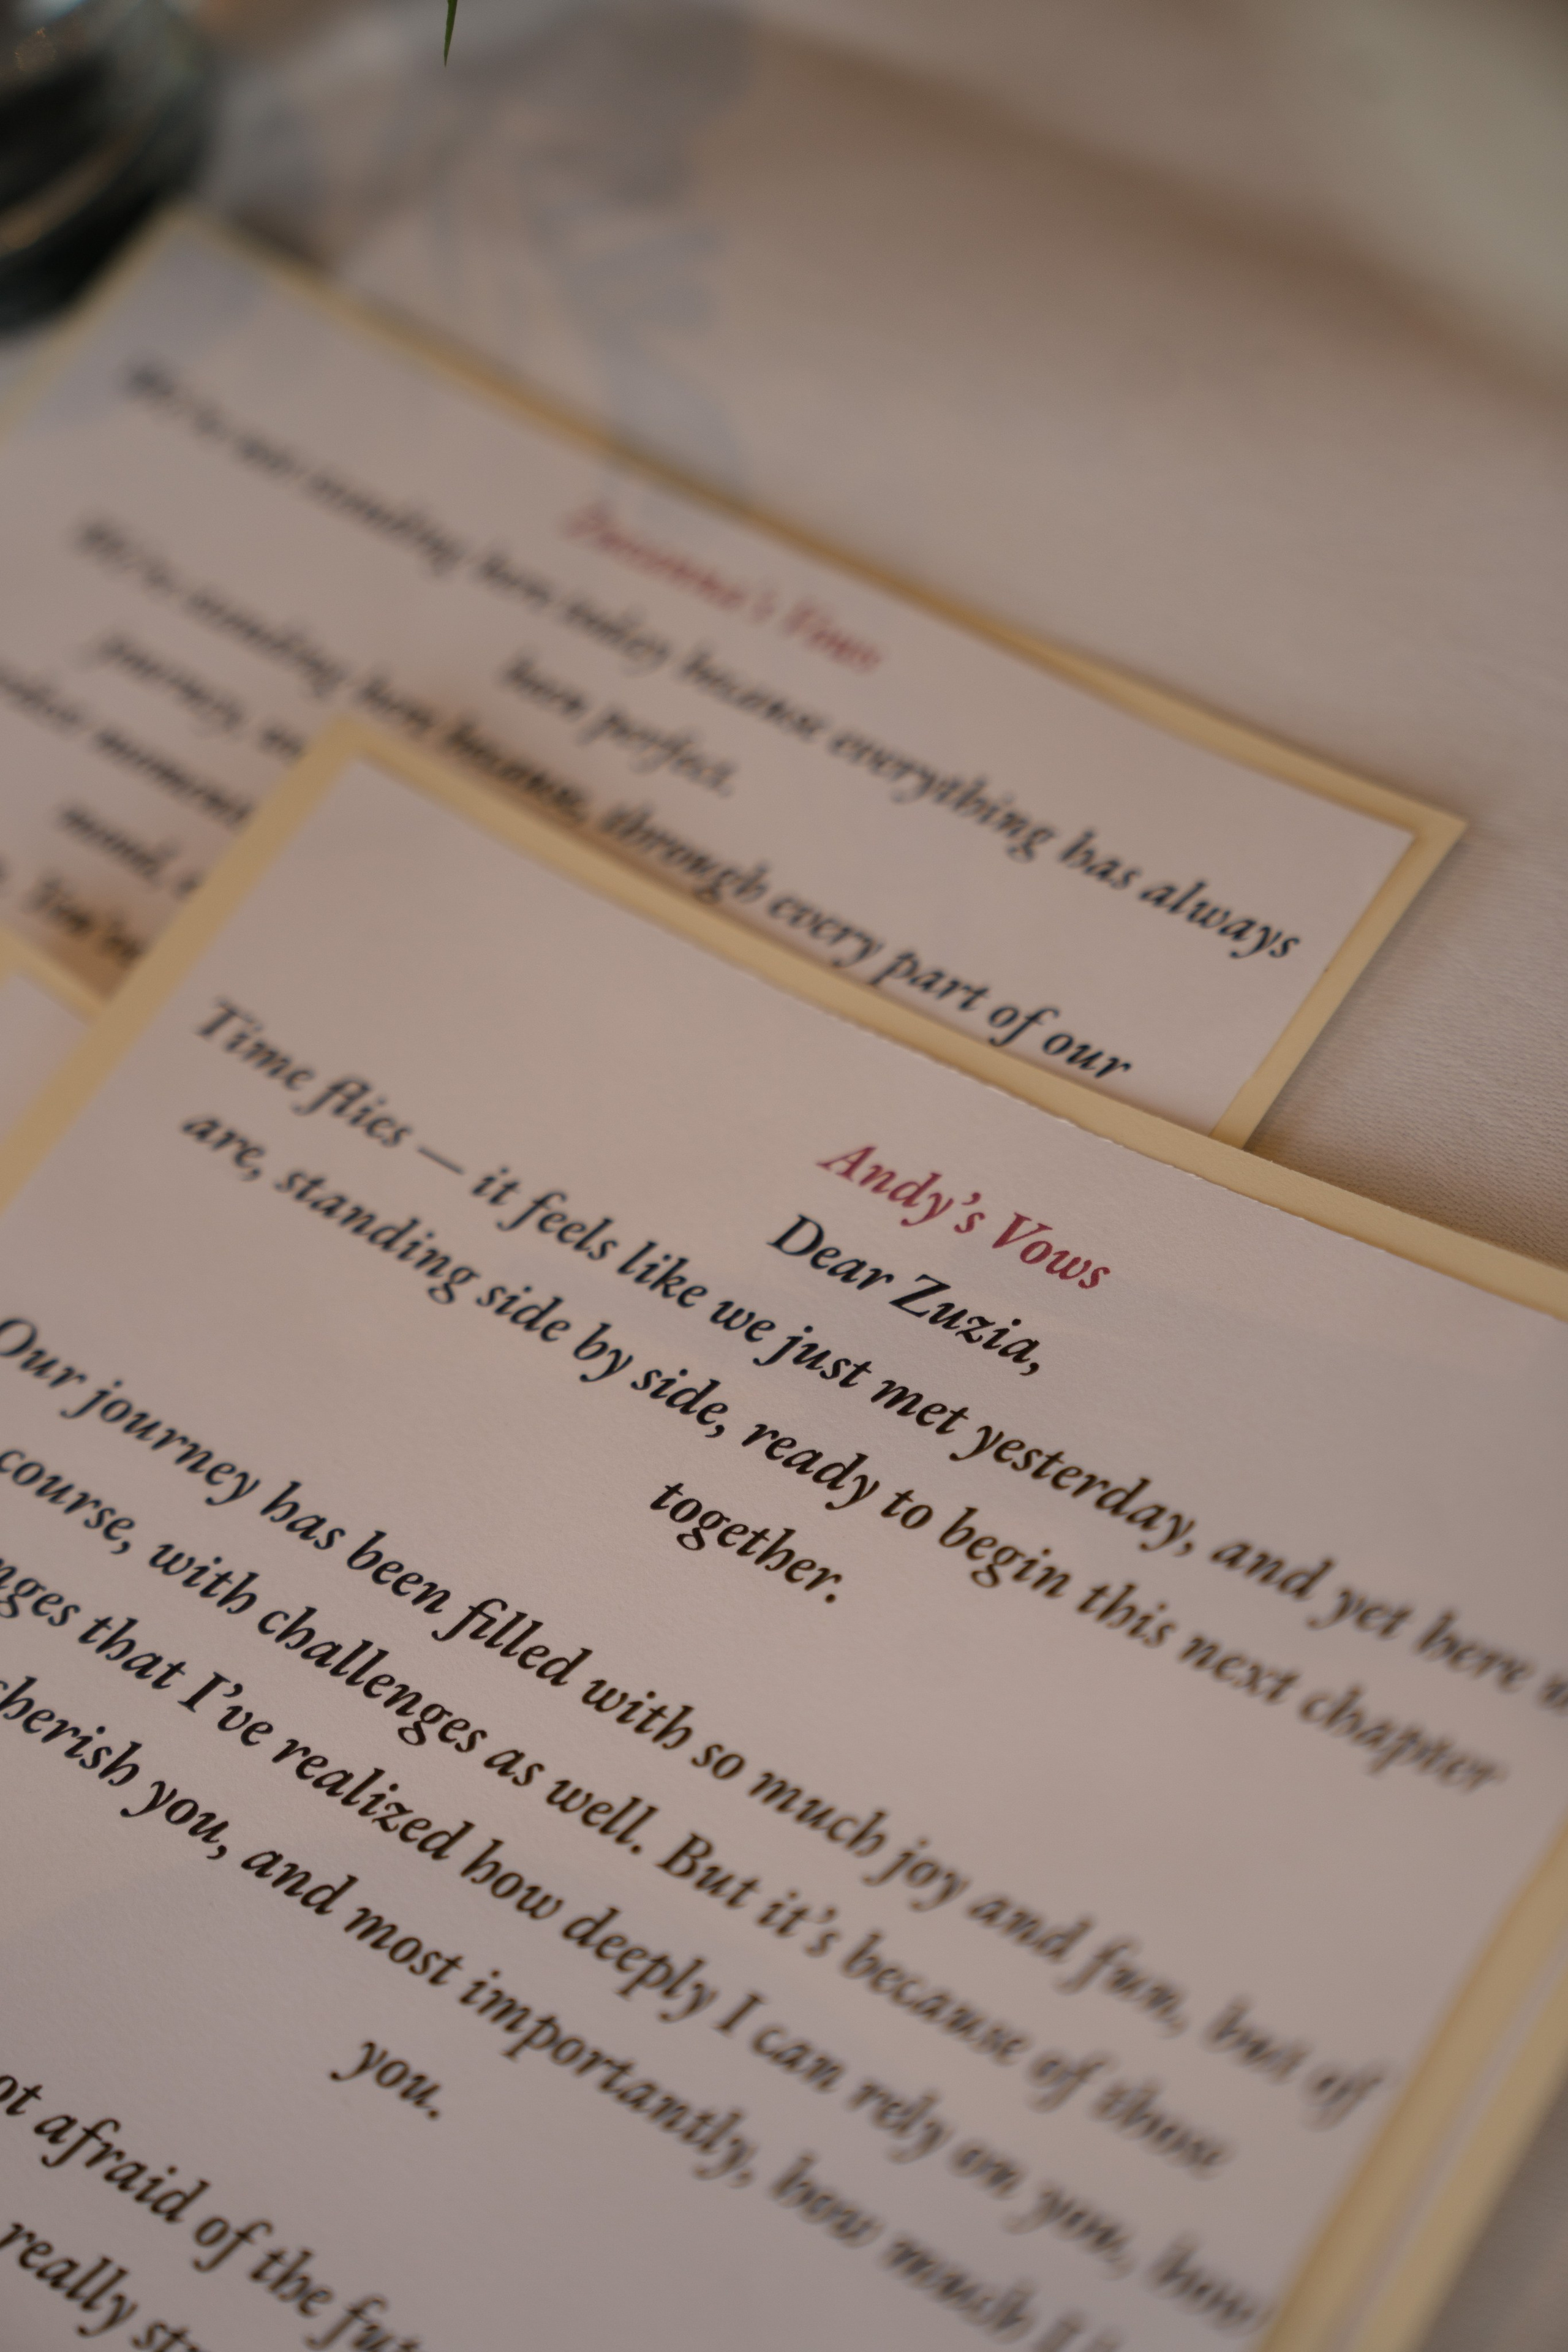 Vows
standing here today because everything has always
been perfect.
standing here because, through every part of our
journey,
Andy's Vows
Dear Zuzia,
Time flies — it feels like we just met yesterday, and yet here
are, standing side by side, ready to begin this next chapter
together.
Our journey has been filled with so much joy and fun, but of
course, with challenges as well. But it's because of those
nges that I've realized how deeply I can rely on you, how
cherish you, and most importantly, how much I
you.
ot afraid of the fu
really str